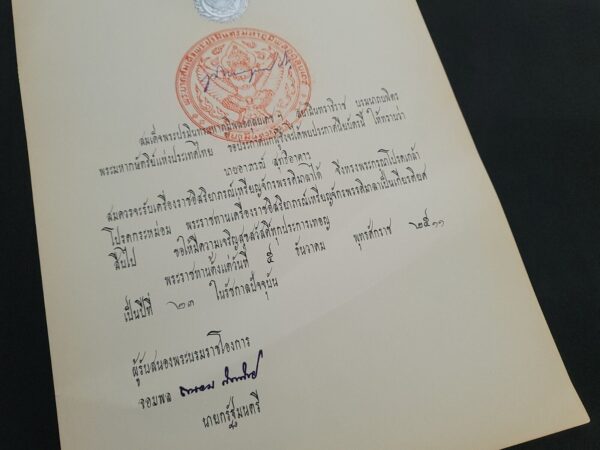 สมเด็จพระปรมินทรมหาภูมิพลอดุลยเดช ฯ สยามินทราธิราช บรมนาถบพิตร
พระมหากษัตริย์แห่งประเทศไทย ขอประกาศแก่ผู้ซึ่งจะได้พบประกาศนียบัตรนี้ ให้ทราบว่า
นายอาภรณ์ สุทธิอาคาร
สมควรจะรับเครื่องราชอิสริยาภรณ์เหรียญจักรพรรดิมาลาได้ จึงทรงพระกรุณาโปรดเกล้า
โปรดกระหม่อม พระราชทานเครื่องราชอิสริยาภรณ์เหรียญจักรพรรดิมาลาเป็นเกียรติยศ
สืบไป ขอให้มีความเจริญสุขสวัสดิ์ทุกประการเทอญ
พระราชทานตั้งแต่วันที่ ๕ ธันวาคม พุทธศักราช ๒๕๑๑
เป็นปีที่ ๒๓ ในรัชกาลปัจจุบัน
ผู้รับสนองพระบรมราชโองการ
จอมพล
นายกรัฐมนตรี